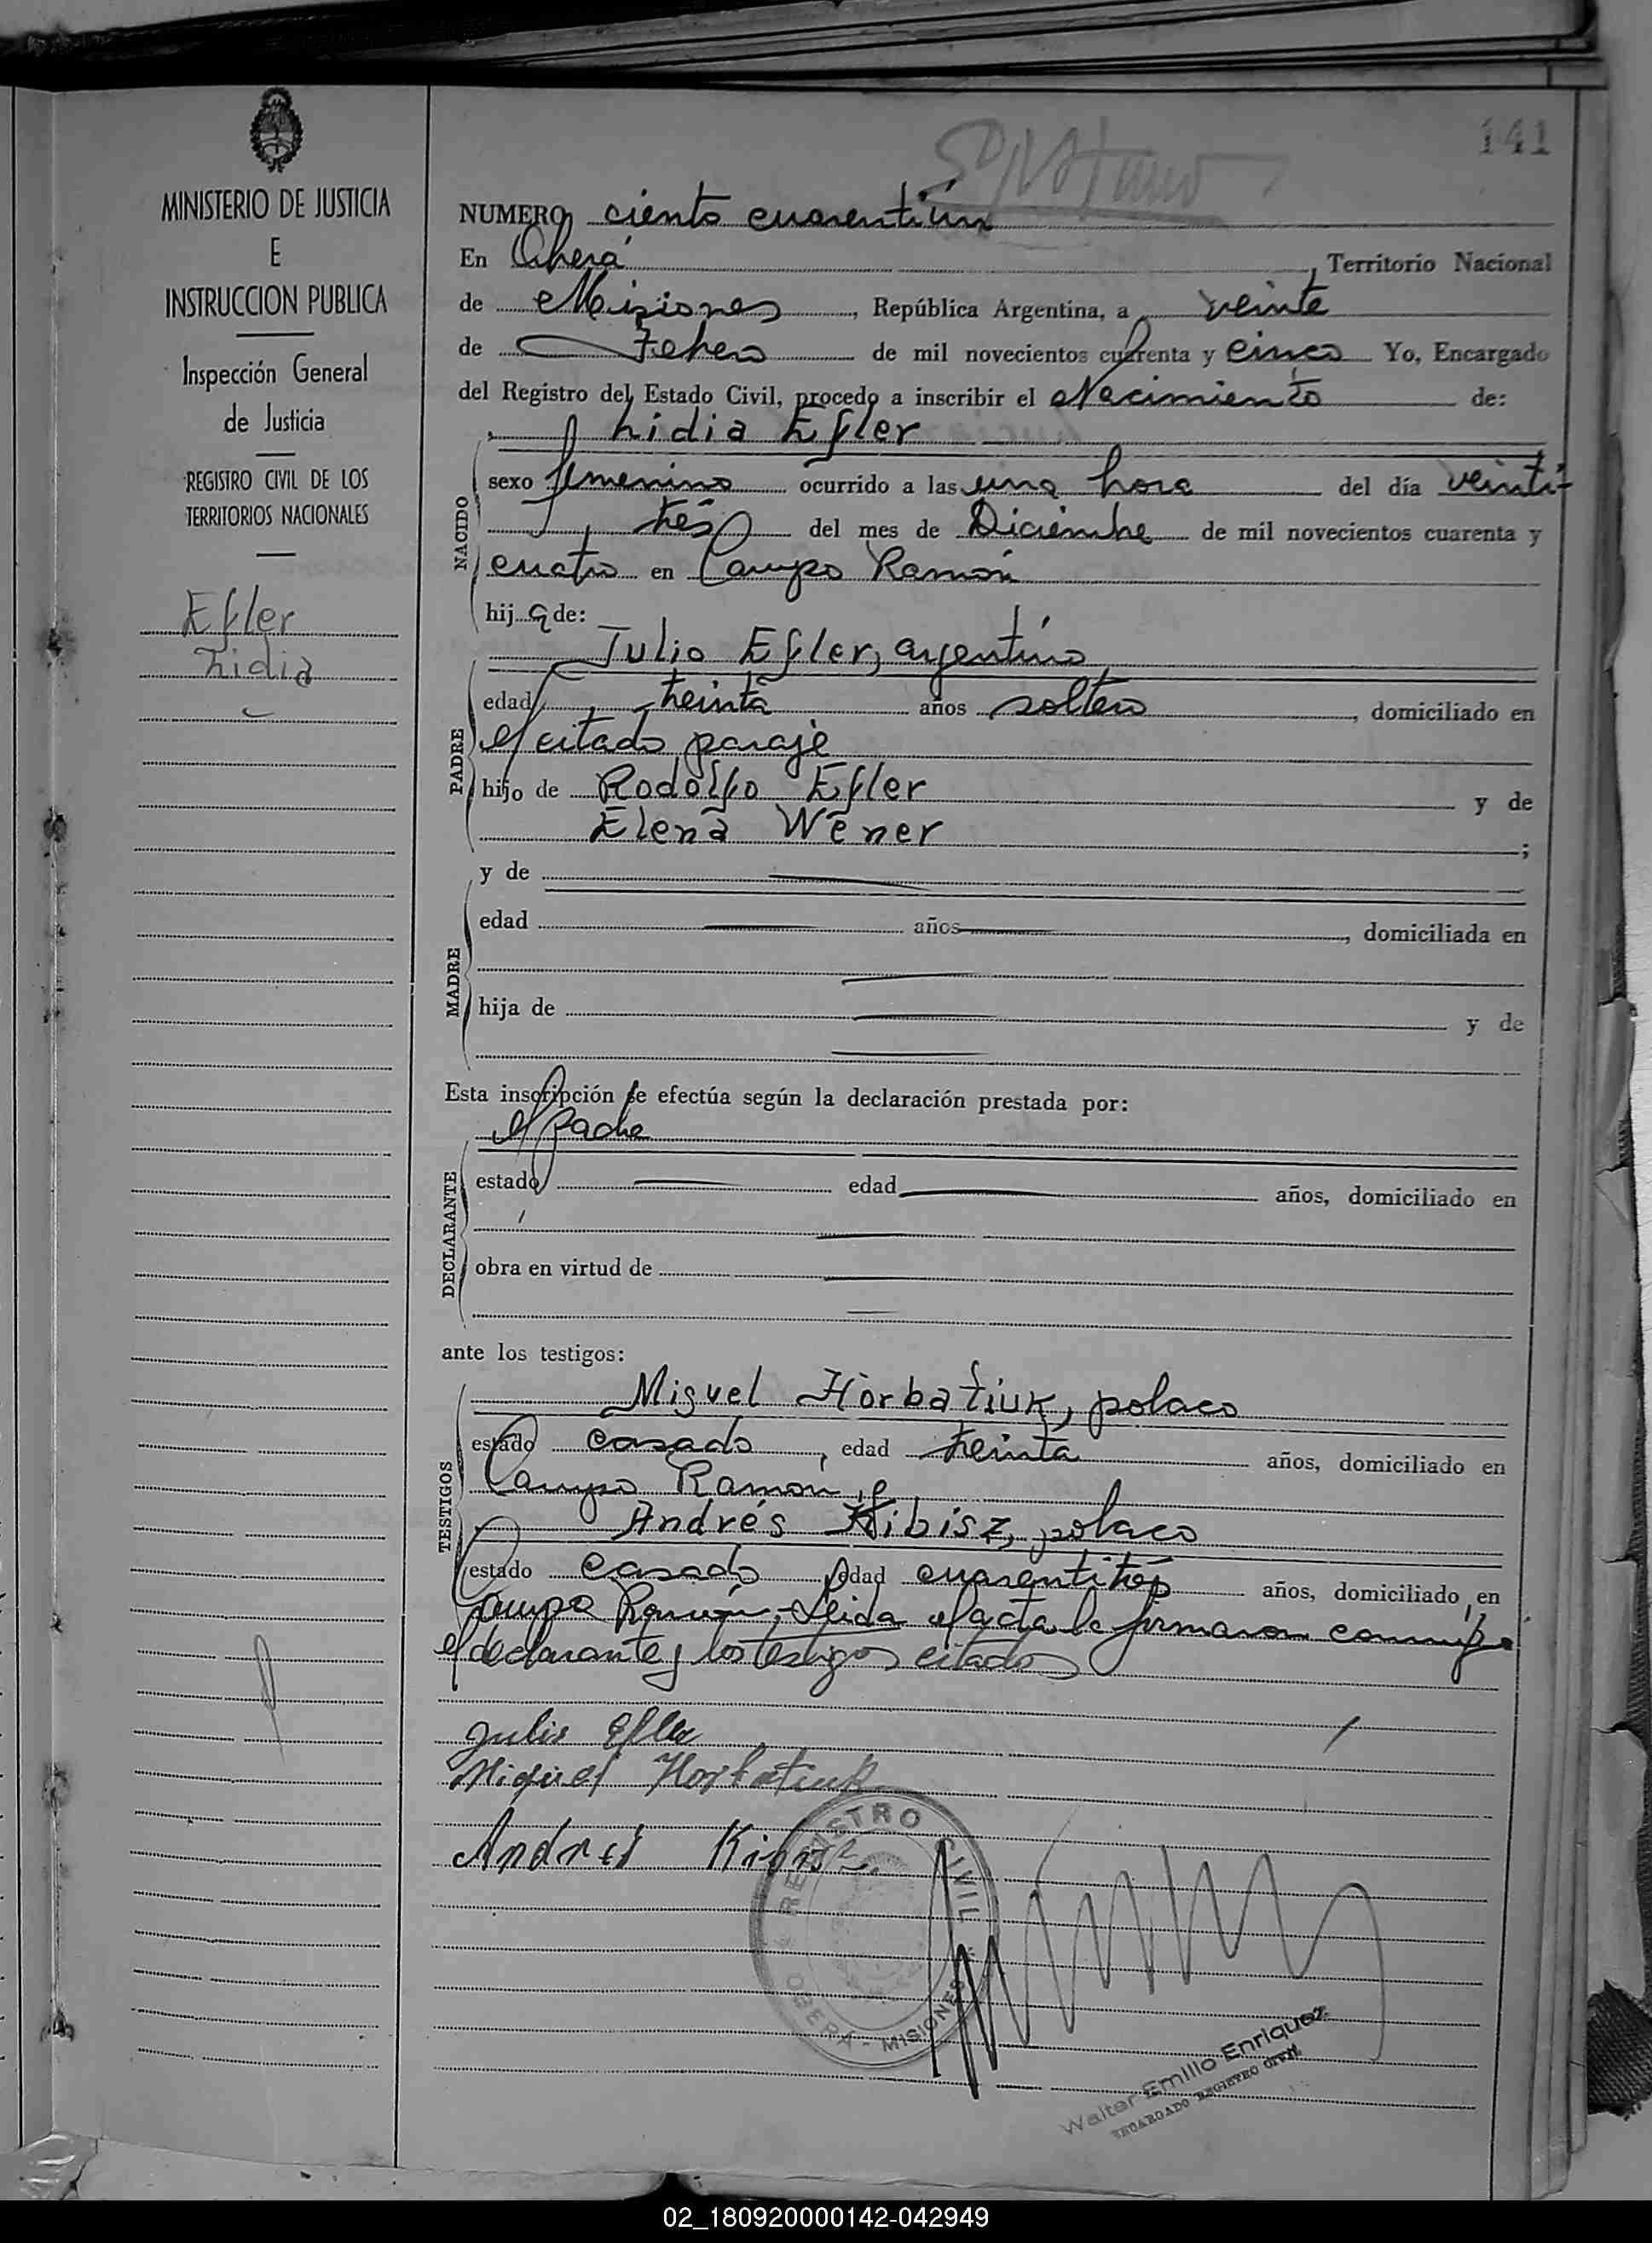 141
MINISTERIO DE JUSTICIA
E
INSTRUCCION PUBLICA
Inspección General
de Justicia
REGISTRO CIVIL DE LOS
TERRITORIOS NACIONALES
Efler
Lidia
NUMERO ciento cuarentiún
En Oberá, Territorio Nacional
de Misiones, República Argentina, a veinte
de Febrero de mil novecientos cuarenta y cinco Yo, Encargado
del Registro del Estado Civil, procedo a inscribir el Nacimiento de:
Lidia Efler
NACIDO
sexo femenino ocurrido a las una hora del día veinti-
trés del mes de Diciembre de mil novecientos cuarenta y
cuatro en Campo Ramón
hij a de:
Julio Efler, argentino
PADRE
edad treinta años soltero, domiciliado en
el citado paraje
hijo de Rodolfo Efler y de
Elena Wener;
y de
MADRE
edad años, domiciliada en
hija de y de
Esta inscripción se efectúa según la declaración prestada por:
el Padre
DECLARANTE
estado edad años, domiciliado en
obra en virtud de
ante los testigos:
TESTIGOS
Miguel Horbatiuk, polaco
estado casado, edad treinta años, domiciliado en
Campo Ramón, e
Andrés Kibisz, polaco
estado casado edad cuarentitrés años, domiciliado en
Campo Ramón. Leida el acta la firmaron conmigo
el declarante y los testigos citados
Julio Efler
Miguel Horbatiuk
Andres Kibisz
REGISTRO CIVIL
OBERÁ - MISIONES
Walter Emilio Enriquez
ENCARGADO REGISTRO CIVIL
02_180920000142-042949